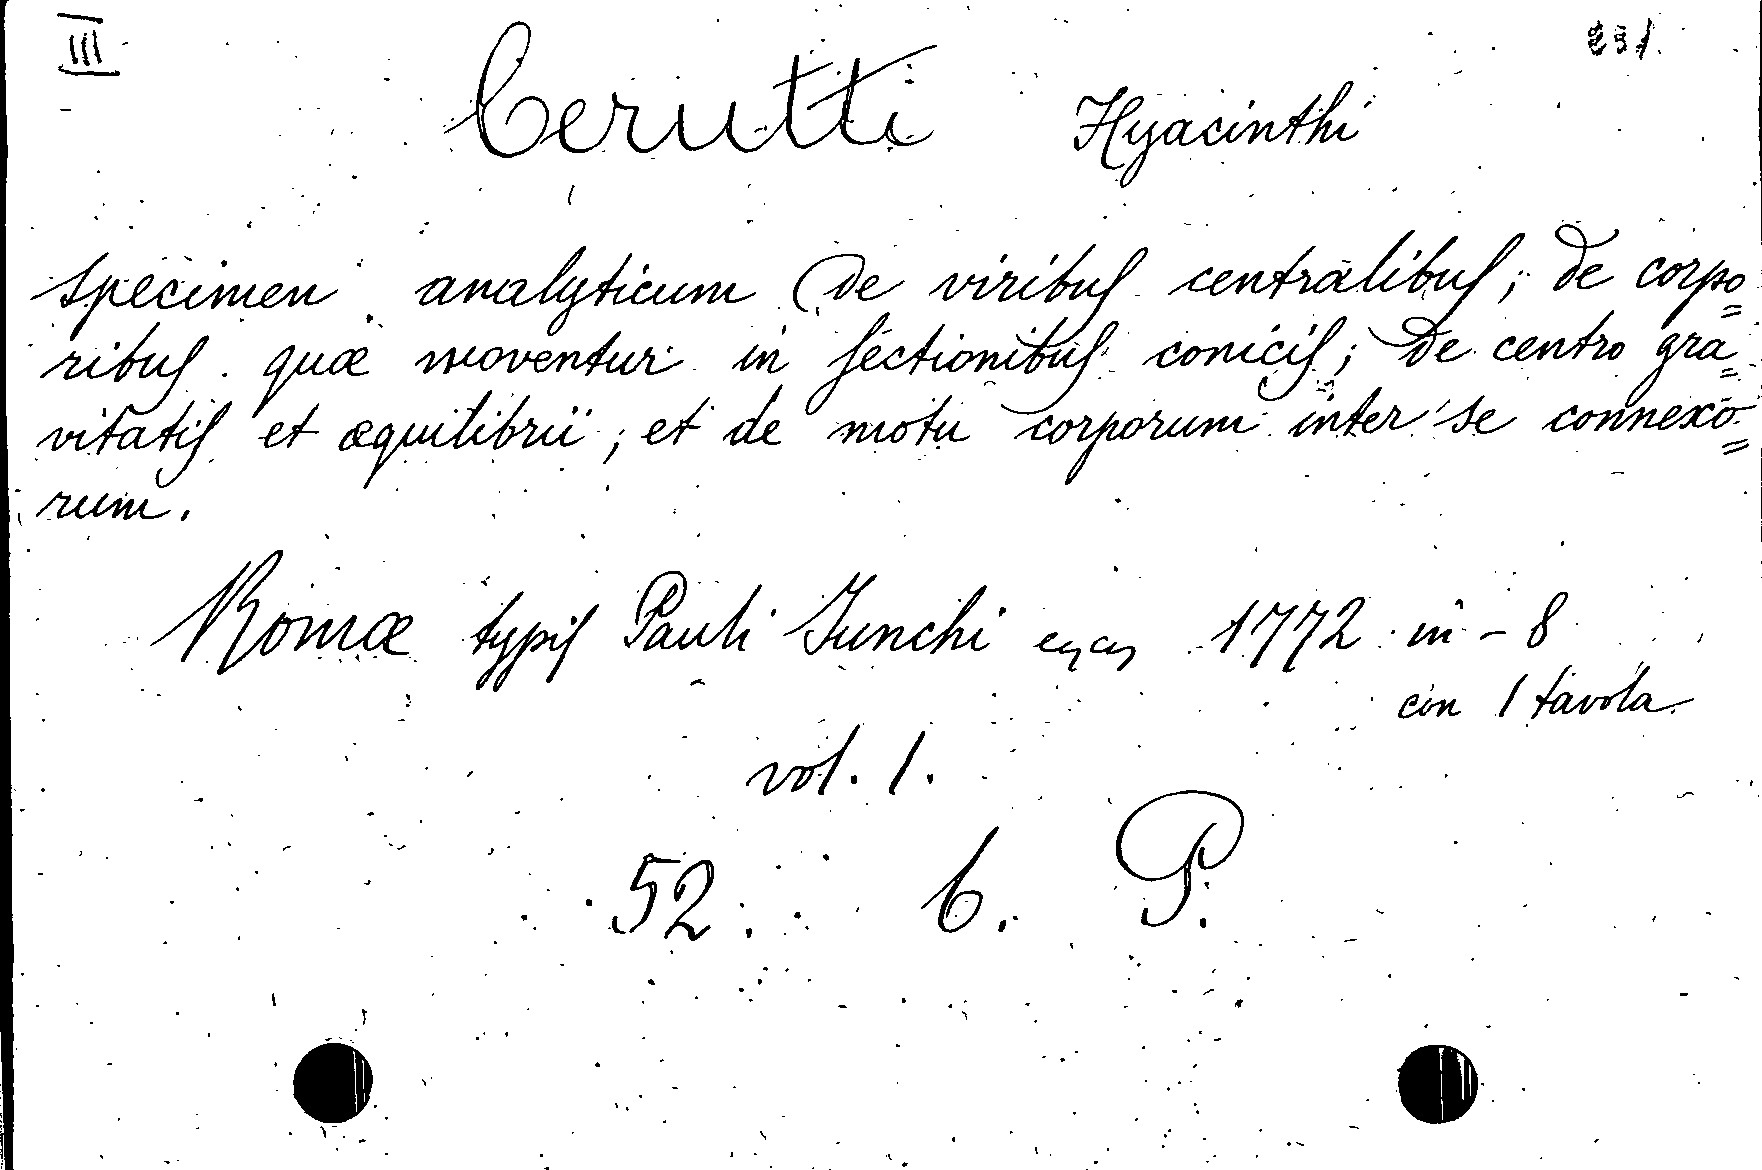 III
231
Cerutti Hyacinthi
Specimen analyticum (de viribus centralibus; de corpo=
ribus quæ moventur in sectionibus conicis; de centro gra=
vitatis et æquilibrii; et de motu corporum inter se connexo=
rum.
Romæ typis Pauli Junchi 1772 in-8
con 1 tavola
vol. 1.
52. 6. P.